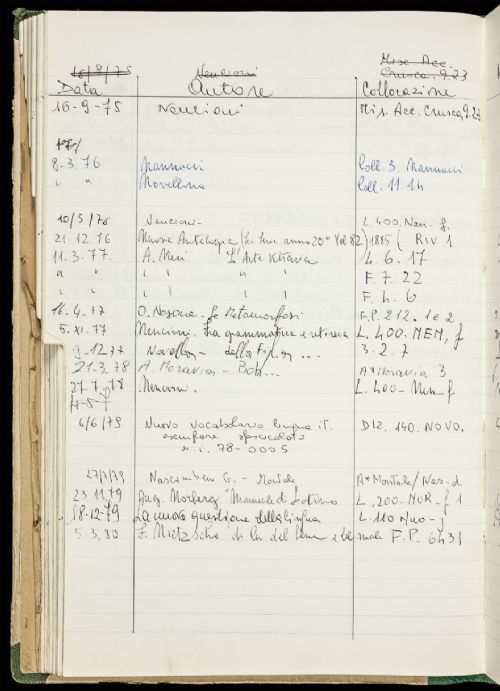 16/9/75 Nencioni Misc. Acc.
Crusca. 9.23
Data Autore Collocazione
16-9-75 Nencioni Mis. Acc. Crusca, 9.23
17/
8.3.76 Mannucci Coll. 3. Mannucci
" " Novellino Coll. 11.14
10/5/76 Nencioni- L. 400. Nen. f.
21.12.76 Nuova Antologia anno 20° Vol 82 1885 ( RIV 1
11.3.77. A. Meri L'Arte Vetraria 4. 6. 17
" " " " " " F. 7. 22
" " " " " " F. 4. 6
16.4.77 O. Nasone. Le Metamorfosi F.P. 212. 1 e 2
5.XI.77 Nencioni. Fra grammatica e retorica L. 400. NEN, f
9.12.77 Novella - della ... 3. 2. 7
21.3.78 A. Moravia - A*Moravia 3
27.7.78 Nencioni. L. 400- Nen- f
6/6/79 Nuovo vocabolario lingua it. DIZ. 140. NOVO.
esemplare
n. i. 78-0005
27/7/79 Nascimbeni G. - Montale A*Montale/Nas. d
23.11.79 "Manuale L, 200- MOR- f 1
18-12-79 La nuova questione della lingua L. 110 Nuo - j
5.3.80 F. Nietzsche "di la del bene e del male F.P. 6431